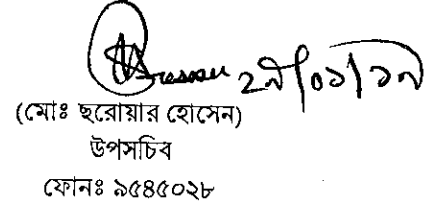 ২৯/০১/১৯
(মোঃ ছরোয়ার হোসেন)
উপসচিব
ফোনঃ ৯৫৪৫০২৮